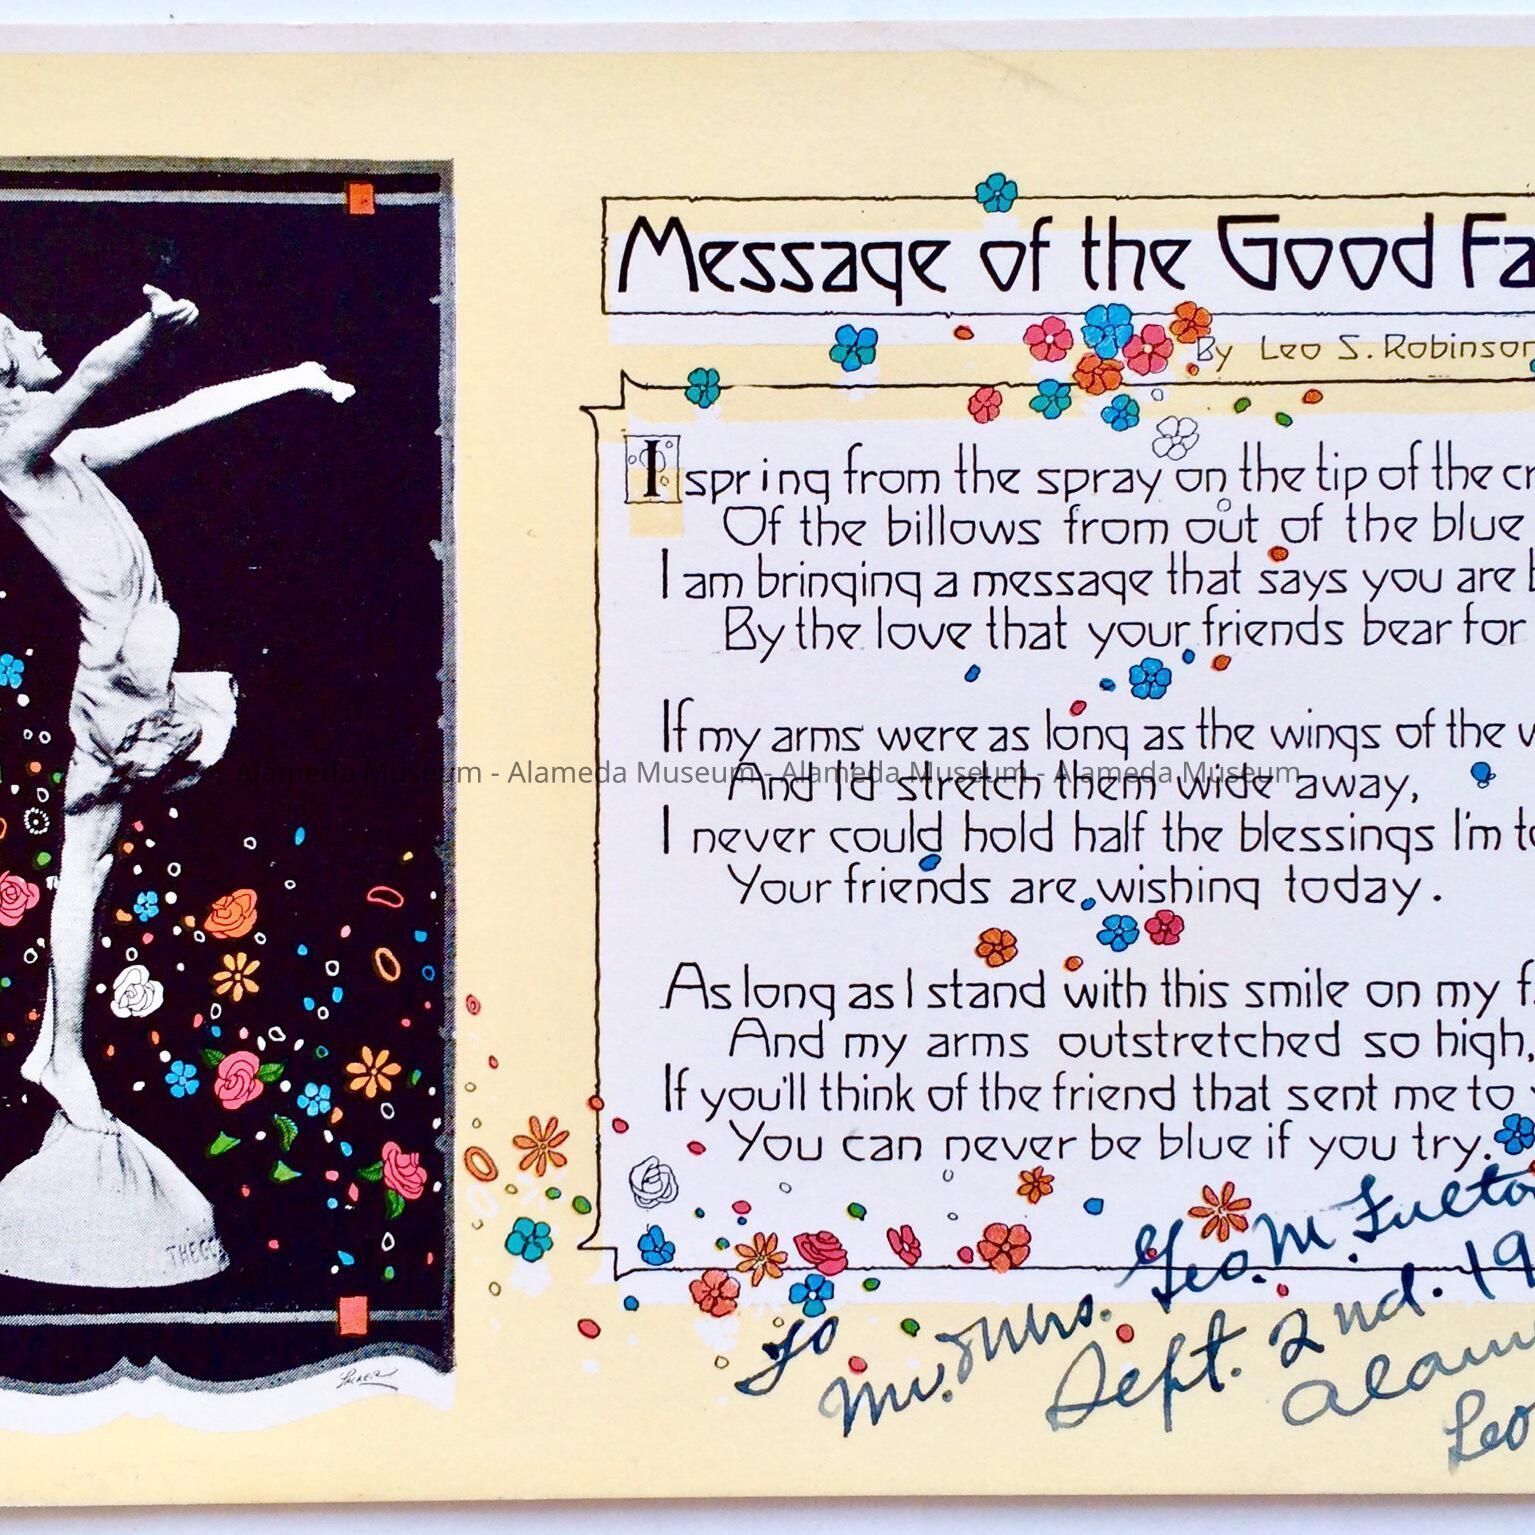 Message of the Good Fa
By Leo S. Robinson
I spring from the spray on the tip of the cr
Of the billows from out of the blue
I am bringing a message that says you are b
By the love that your friends bear for
If my arms were as long as the wings of the w
Alameda Museum - Alameda Museum - Alameda Museum - Alameda Museum
And I'd stretch them wide away,
I never could hold half the blessings I'm to
Your friends are wishing today.
As long as I stand with this smile on my f
And my arms outstretched so high,
If you'll think of the friend that sent me to
You can never be blue if you try.
THE GO
To
Mr. & Mrs. Geo. M. Fulto
Sept. 2nd. 19
Alam
Leo